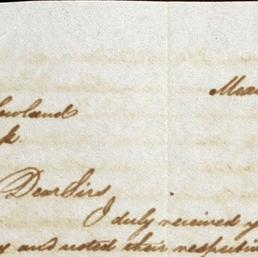 Mea
owland
k.
Dear Sirs
I duly received y
y and noted their respective